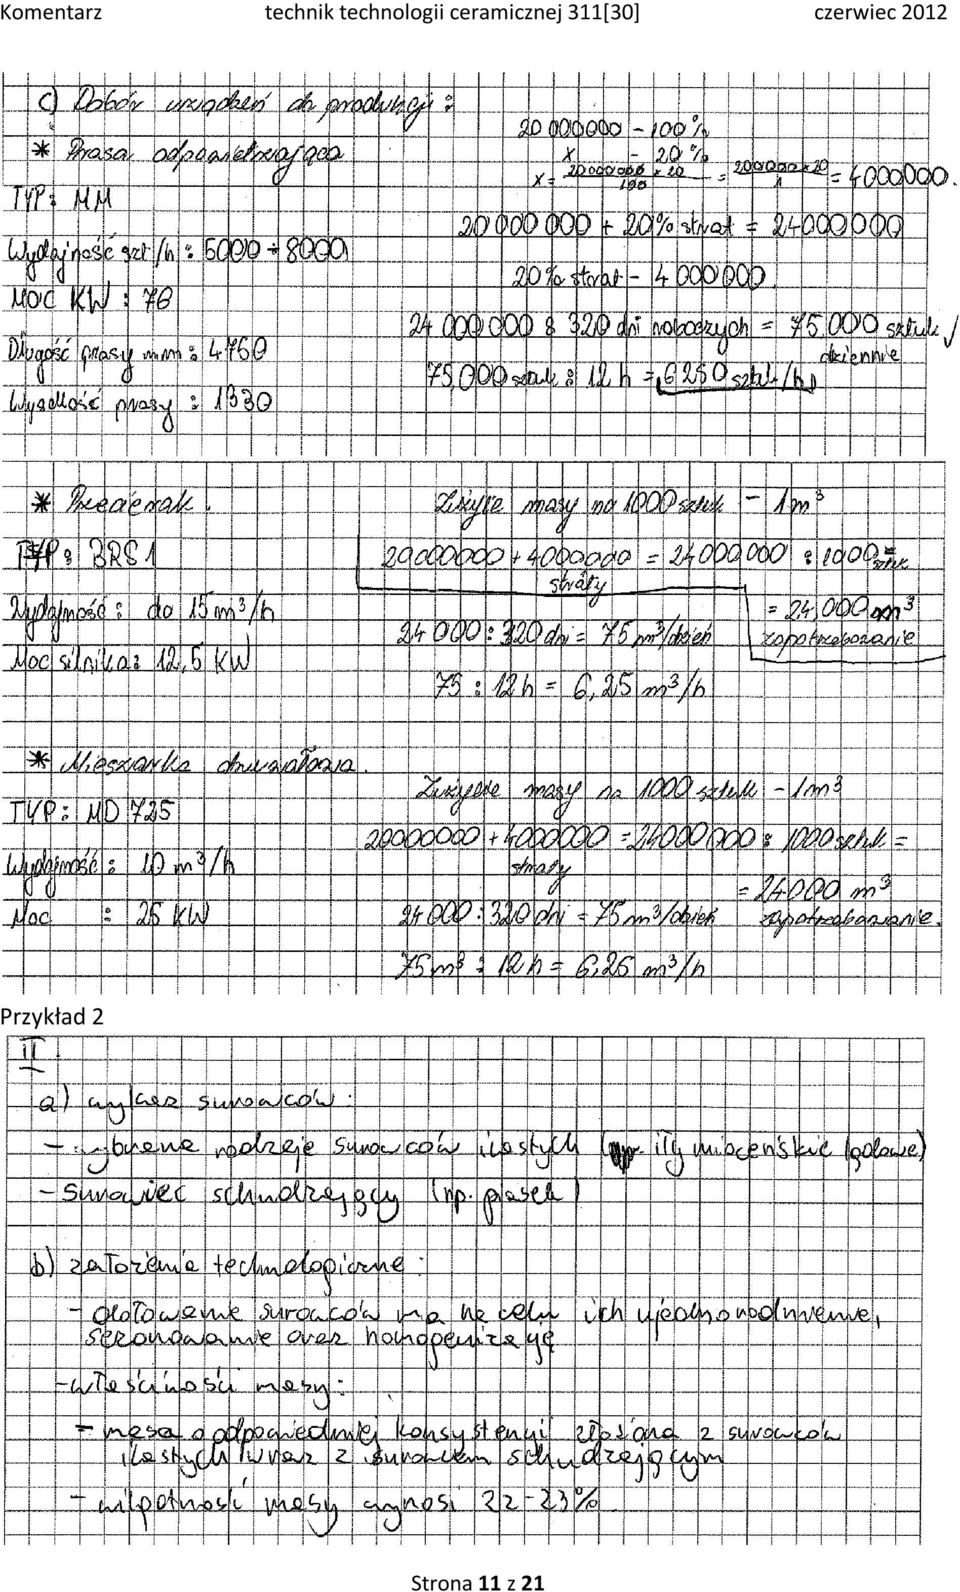 Komentarz technik technologii ceramicznej 311[30] czerwiec 2012
c) Dobór urządzeń do produkcji :
* Prasa odpowietrzająca
TYP: MM
Wydajność szt/h : 5000 ÷ 8000
MOC KW : 76
Długość prasy mm : 4750
Wysokość prasy : 1330
20 000 000 - 100 %
X - 20 %
X = 20000000 × 20 / 100 = 20000000 × 20 / 1 = 4000000.
20 000 000 + 20% strat = 24000000
20% strat - 4 000 000
24 000 000 : 320 dni roboczych = 75.000 sztuk /
dziennie
75,000 sztuk : 12 h = 6250 sztuk/h
* Przecierak.
TYP: BRS1
Wydajność : do 15 m³/h
Moc silnika: 12,5 KW
Zużycie masy na 1000 sztuk - 1m³
20000000 + 4000000 = 24000000 : 1000 sztuk
straty
= 24,000 m³
zapotrzebowanie
24 000 : 320 dni = 75 m³/dzień
75 : 12h = 6,25 m³/h
* Mieszarka dwuwałowa.
TYP: MD 725
Wydajność : 10 m³/h
Moc : 25 KW
Zużycie masy na 1000 sztuk - 1m³
20000000 + 4000000 = 24000000 : 1000 sztuk =
straty
= 24000 m³
24000 : 320 dni = 75 m³/dzień zapotrzebowanie.
75m³ : 12 h = 6,25 m³/h
Przykład 2
II.
a) wykaz surowców :
- wybrane rodzaje surowców ilastych (np. iły mioceńskie lądowe)
- surowiec schudzający (np. piasek)
b) założenia technologiczne :
- dołowanie surowców ma na celu ich ujednorodnienie,
sezonowanie oraz homogenizację
- właściwości masy :
- masa o odpowiedniej konsystencji złożona z surowców
ilastych wraz z surowcem schudzającym
- wilgotność masy wynosi 22-23%
Strona 11 z 21